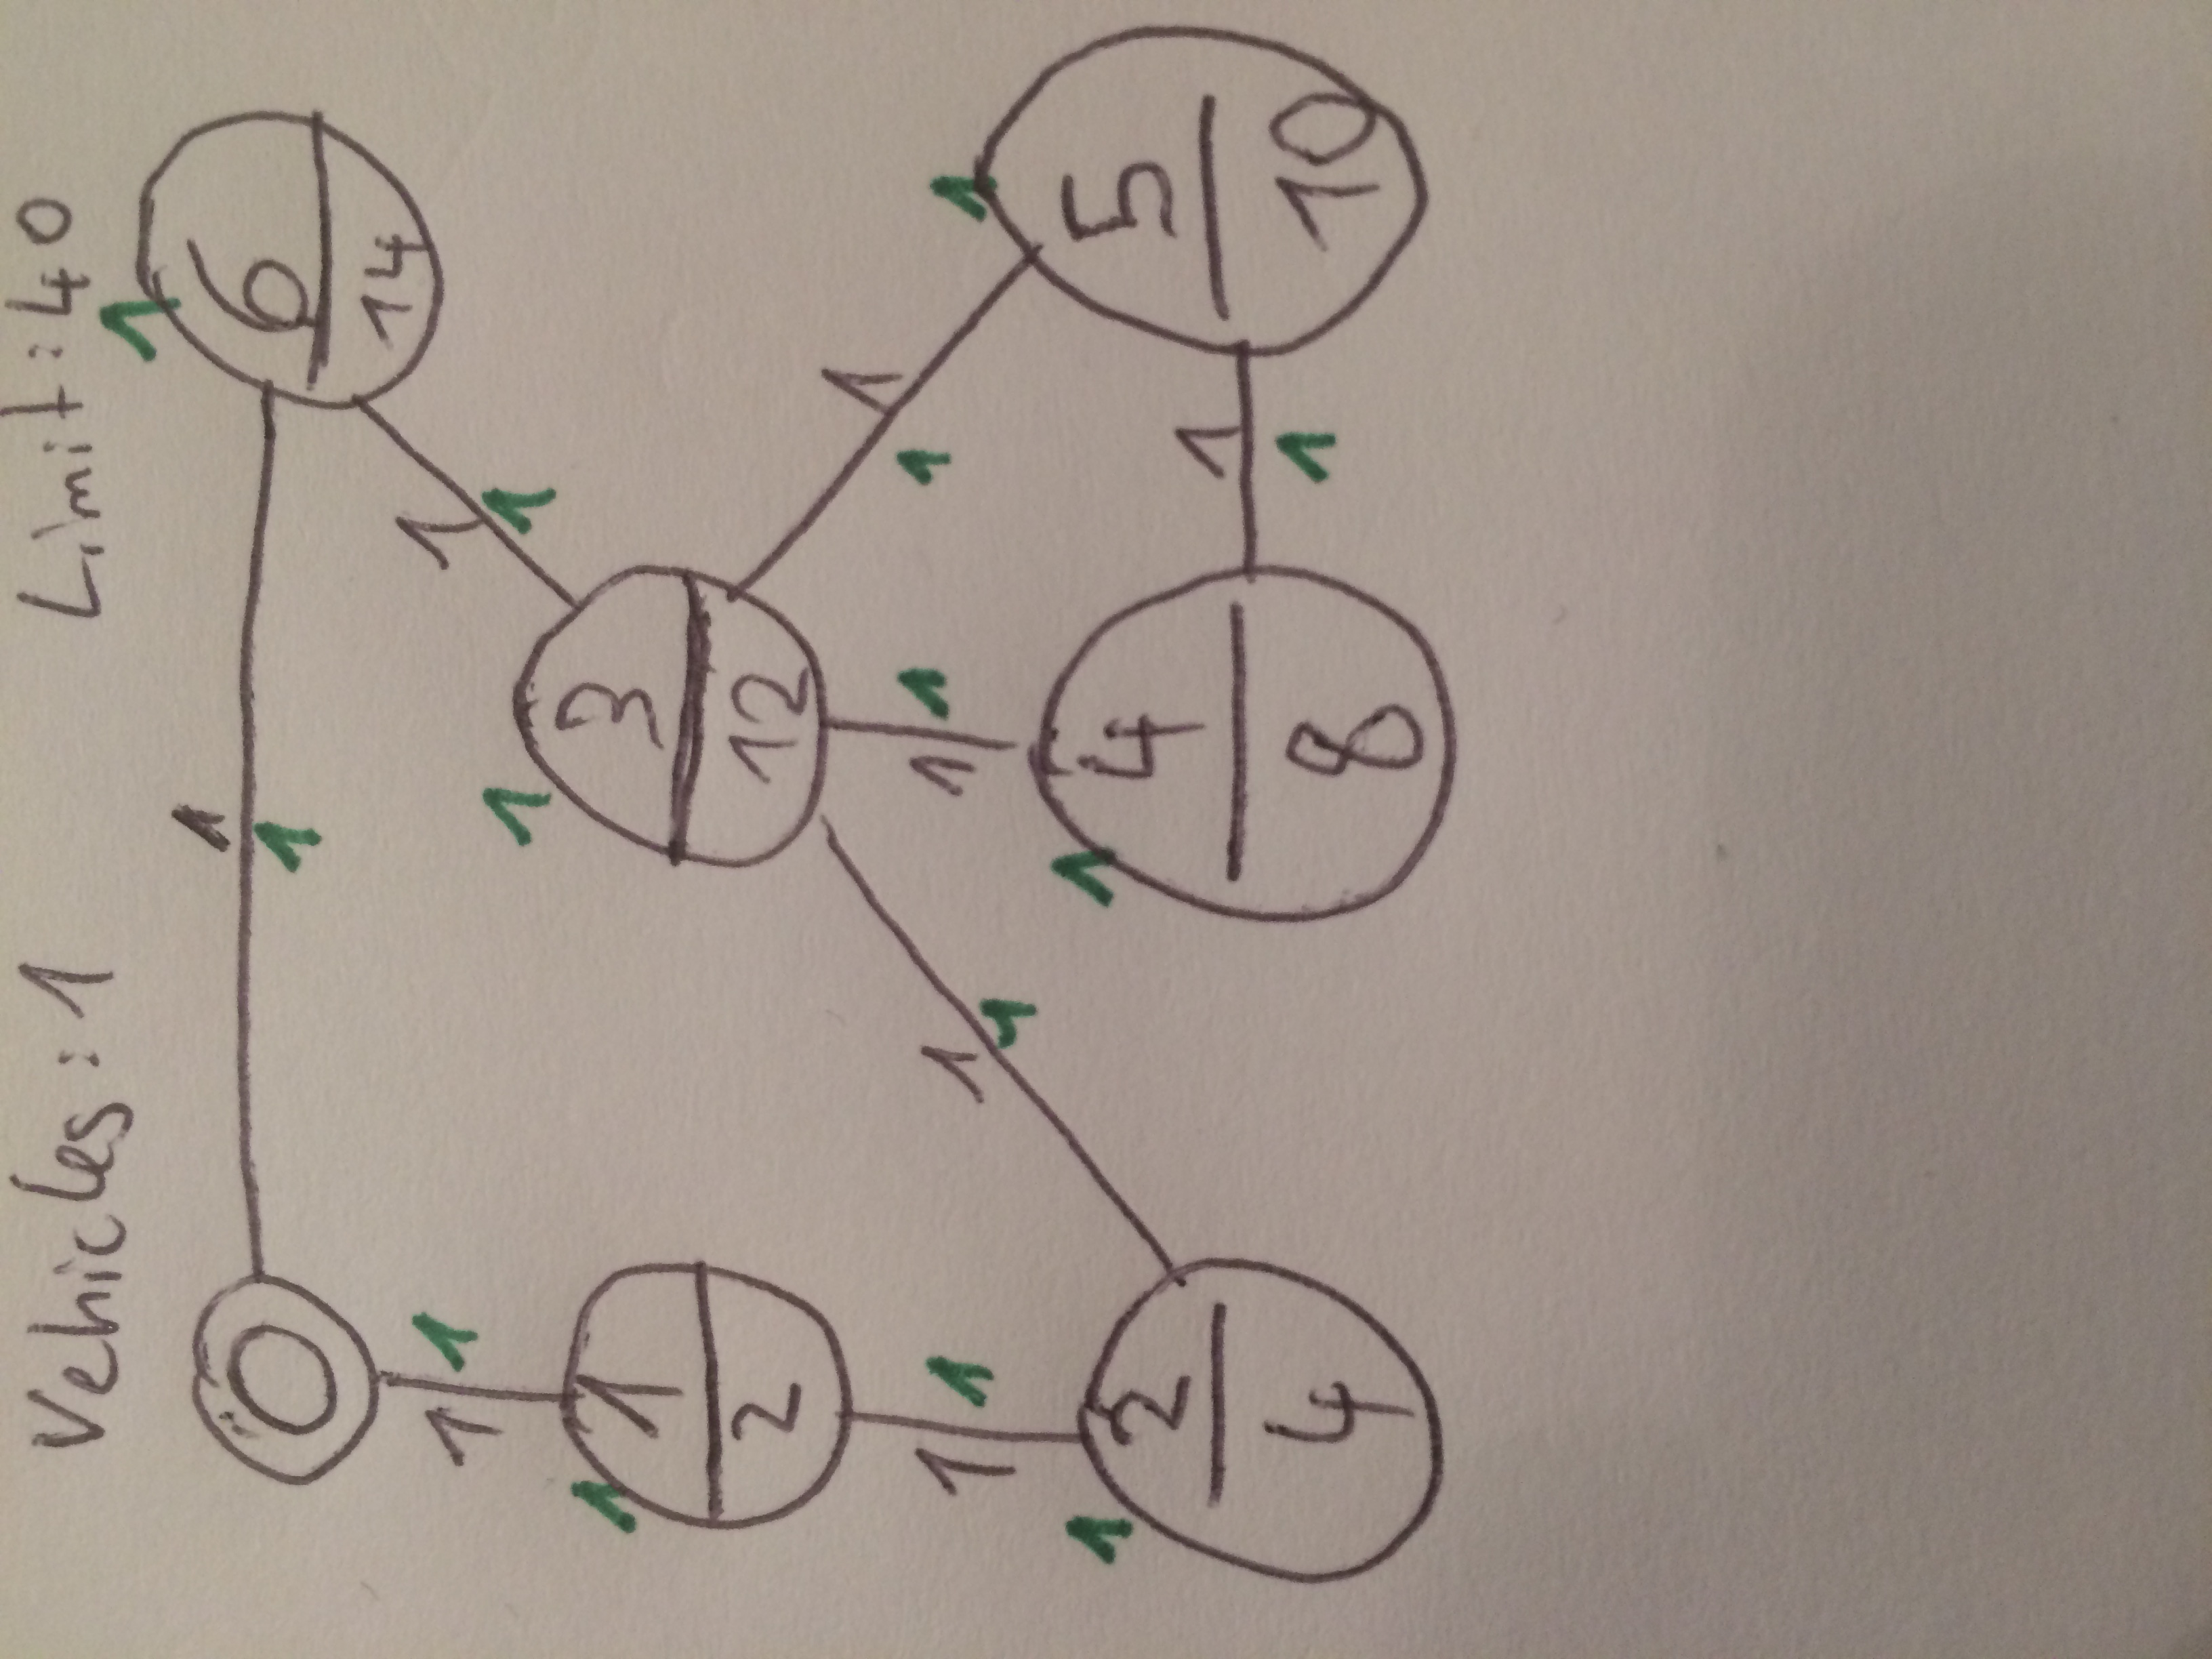 Vehicles: 1
Limit: 40
1
0
1
1
6
14
1
1
1
1
1
3
12
1
1
1
2
1
1
1
1
1
1
1
1
1
2
4
1
4
8
1
1
1
5
10